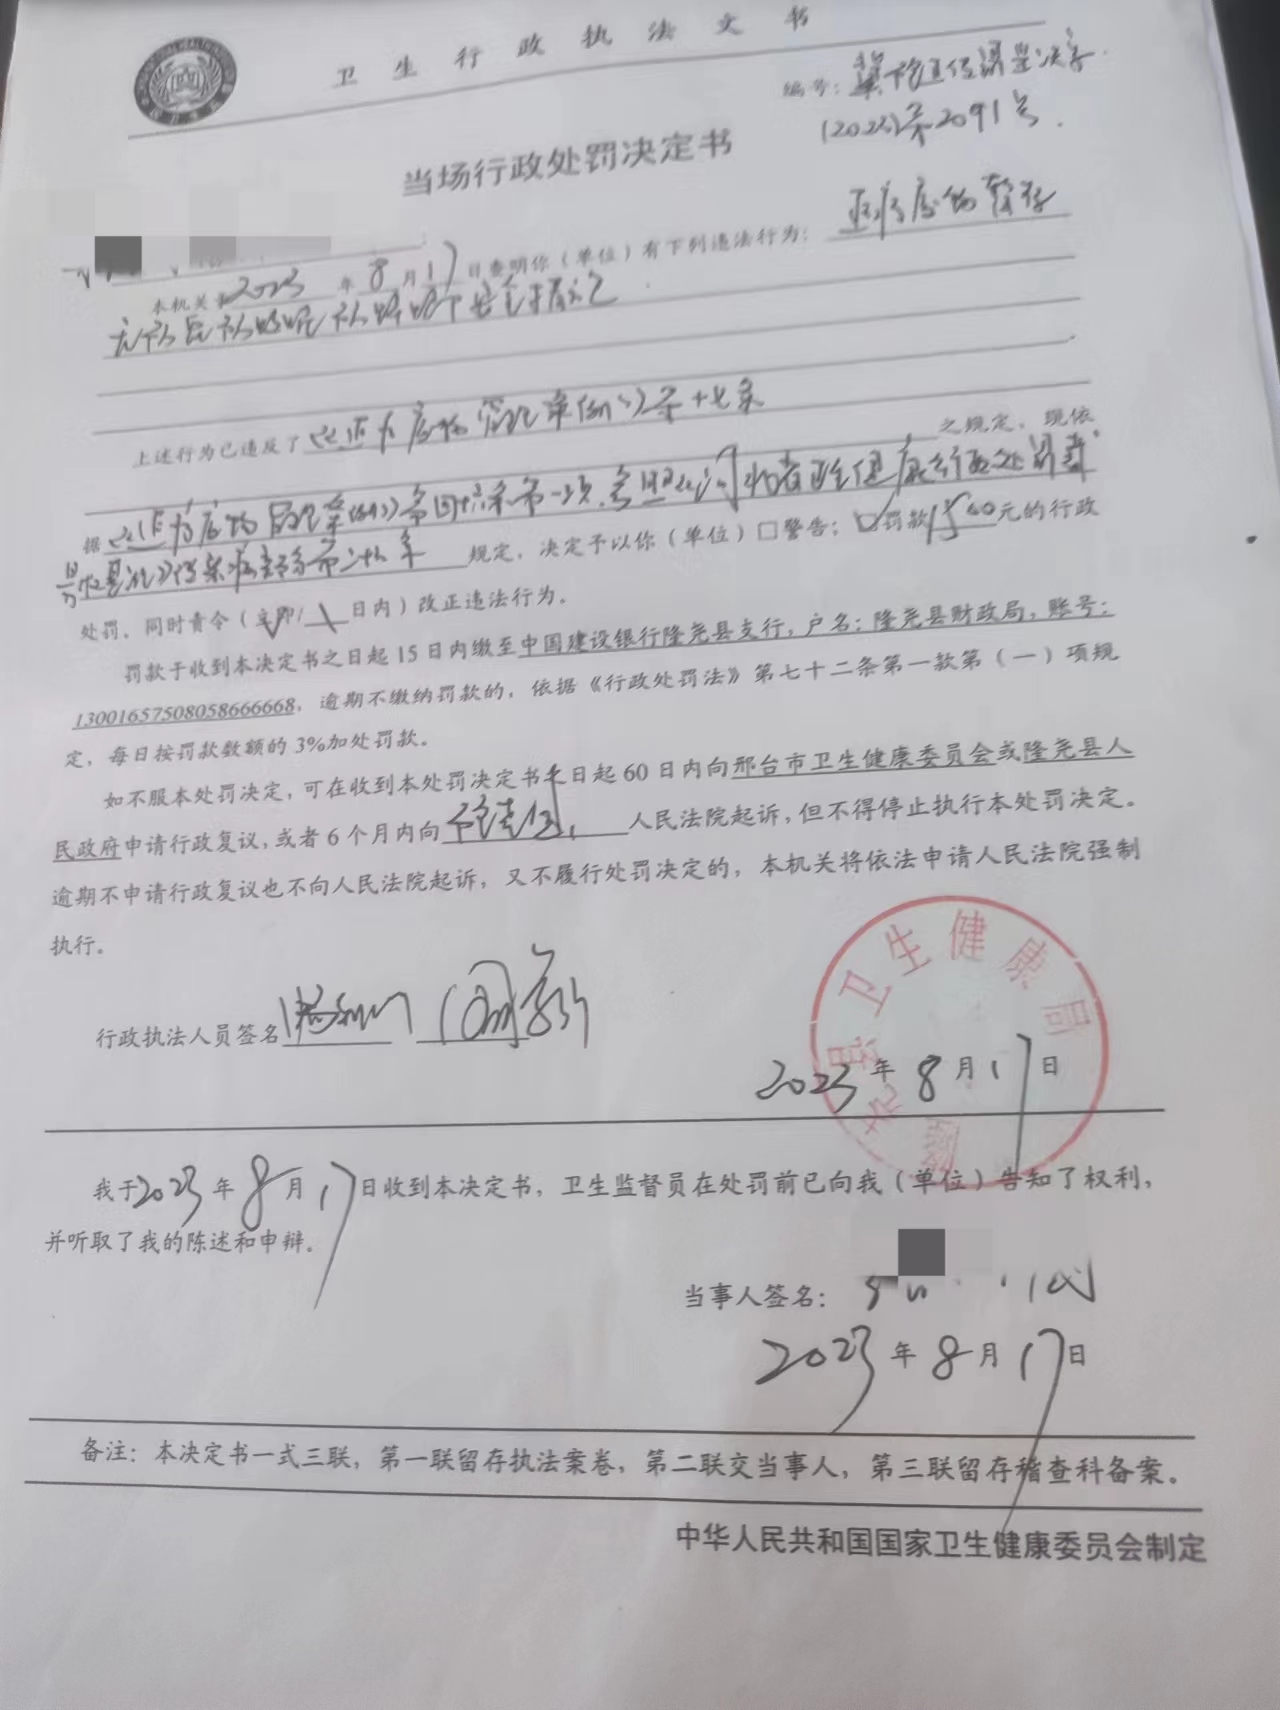 卫生行政执法文书
编号：
(2023)第2091号
当场行政处罚决定书
本机关于2023年8月17日查明你（单位）有下列违法行为：医疗废物暂存
上述行为已违反了《医疗废物管理条例》第十七条之规定，现依
据《医疗废物管理条例》第四十六条第一项
规定，决定予以你（单位）□警告；☑罚款元的行政
处罚。同时责令（立即/日内）改正违法行为。
罚款于收到本决定书之日起15日内缴至中国建设银行隆尧县支行，户名：隆尧县财政局，账号：
13001657508058666668，逾期不缴纳罚款的，依据《行政处罚法》第七十二条第一款第（一）项规
定，每日按罚款数额的3%加处罚款。
如不服本处罚决定，可在收到本处罚决定书之日起60日内向邢台市卫生健康委员会或隆尧县人
民政府申请行政复议，或者6个月内向人民法院起诉，但不得停止执行本处罚决定。
逾期不申请行政复议也不向人民法院起诉，又不履行处罚决定的，本机关将依法申请人民法院强制
执行。
隆尧县卫生健康局
行政执法人员签名
2023年8月17日
我于2023年8月17日收到本决定书，卫生监督员在处罚前已向我（单位）告知了权利，
并听取了我的陈述和申辩。
当事人签名：
2023年8月17日
备注：本决定书一式三联，第一联留存执法案卷，第二联交当事人，第三联留存稽查科备案。
中华人民共和国国家卫生健康委员会制定